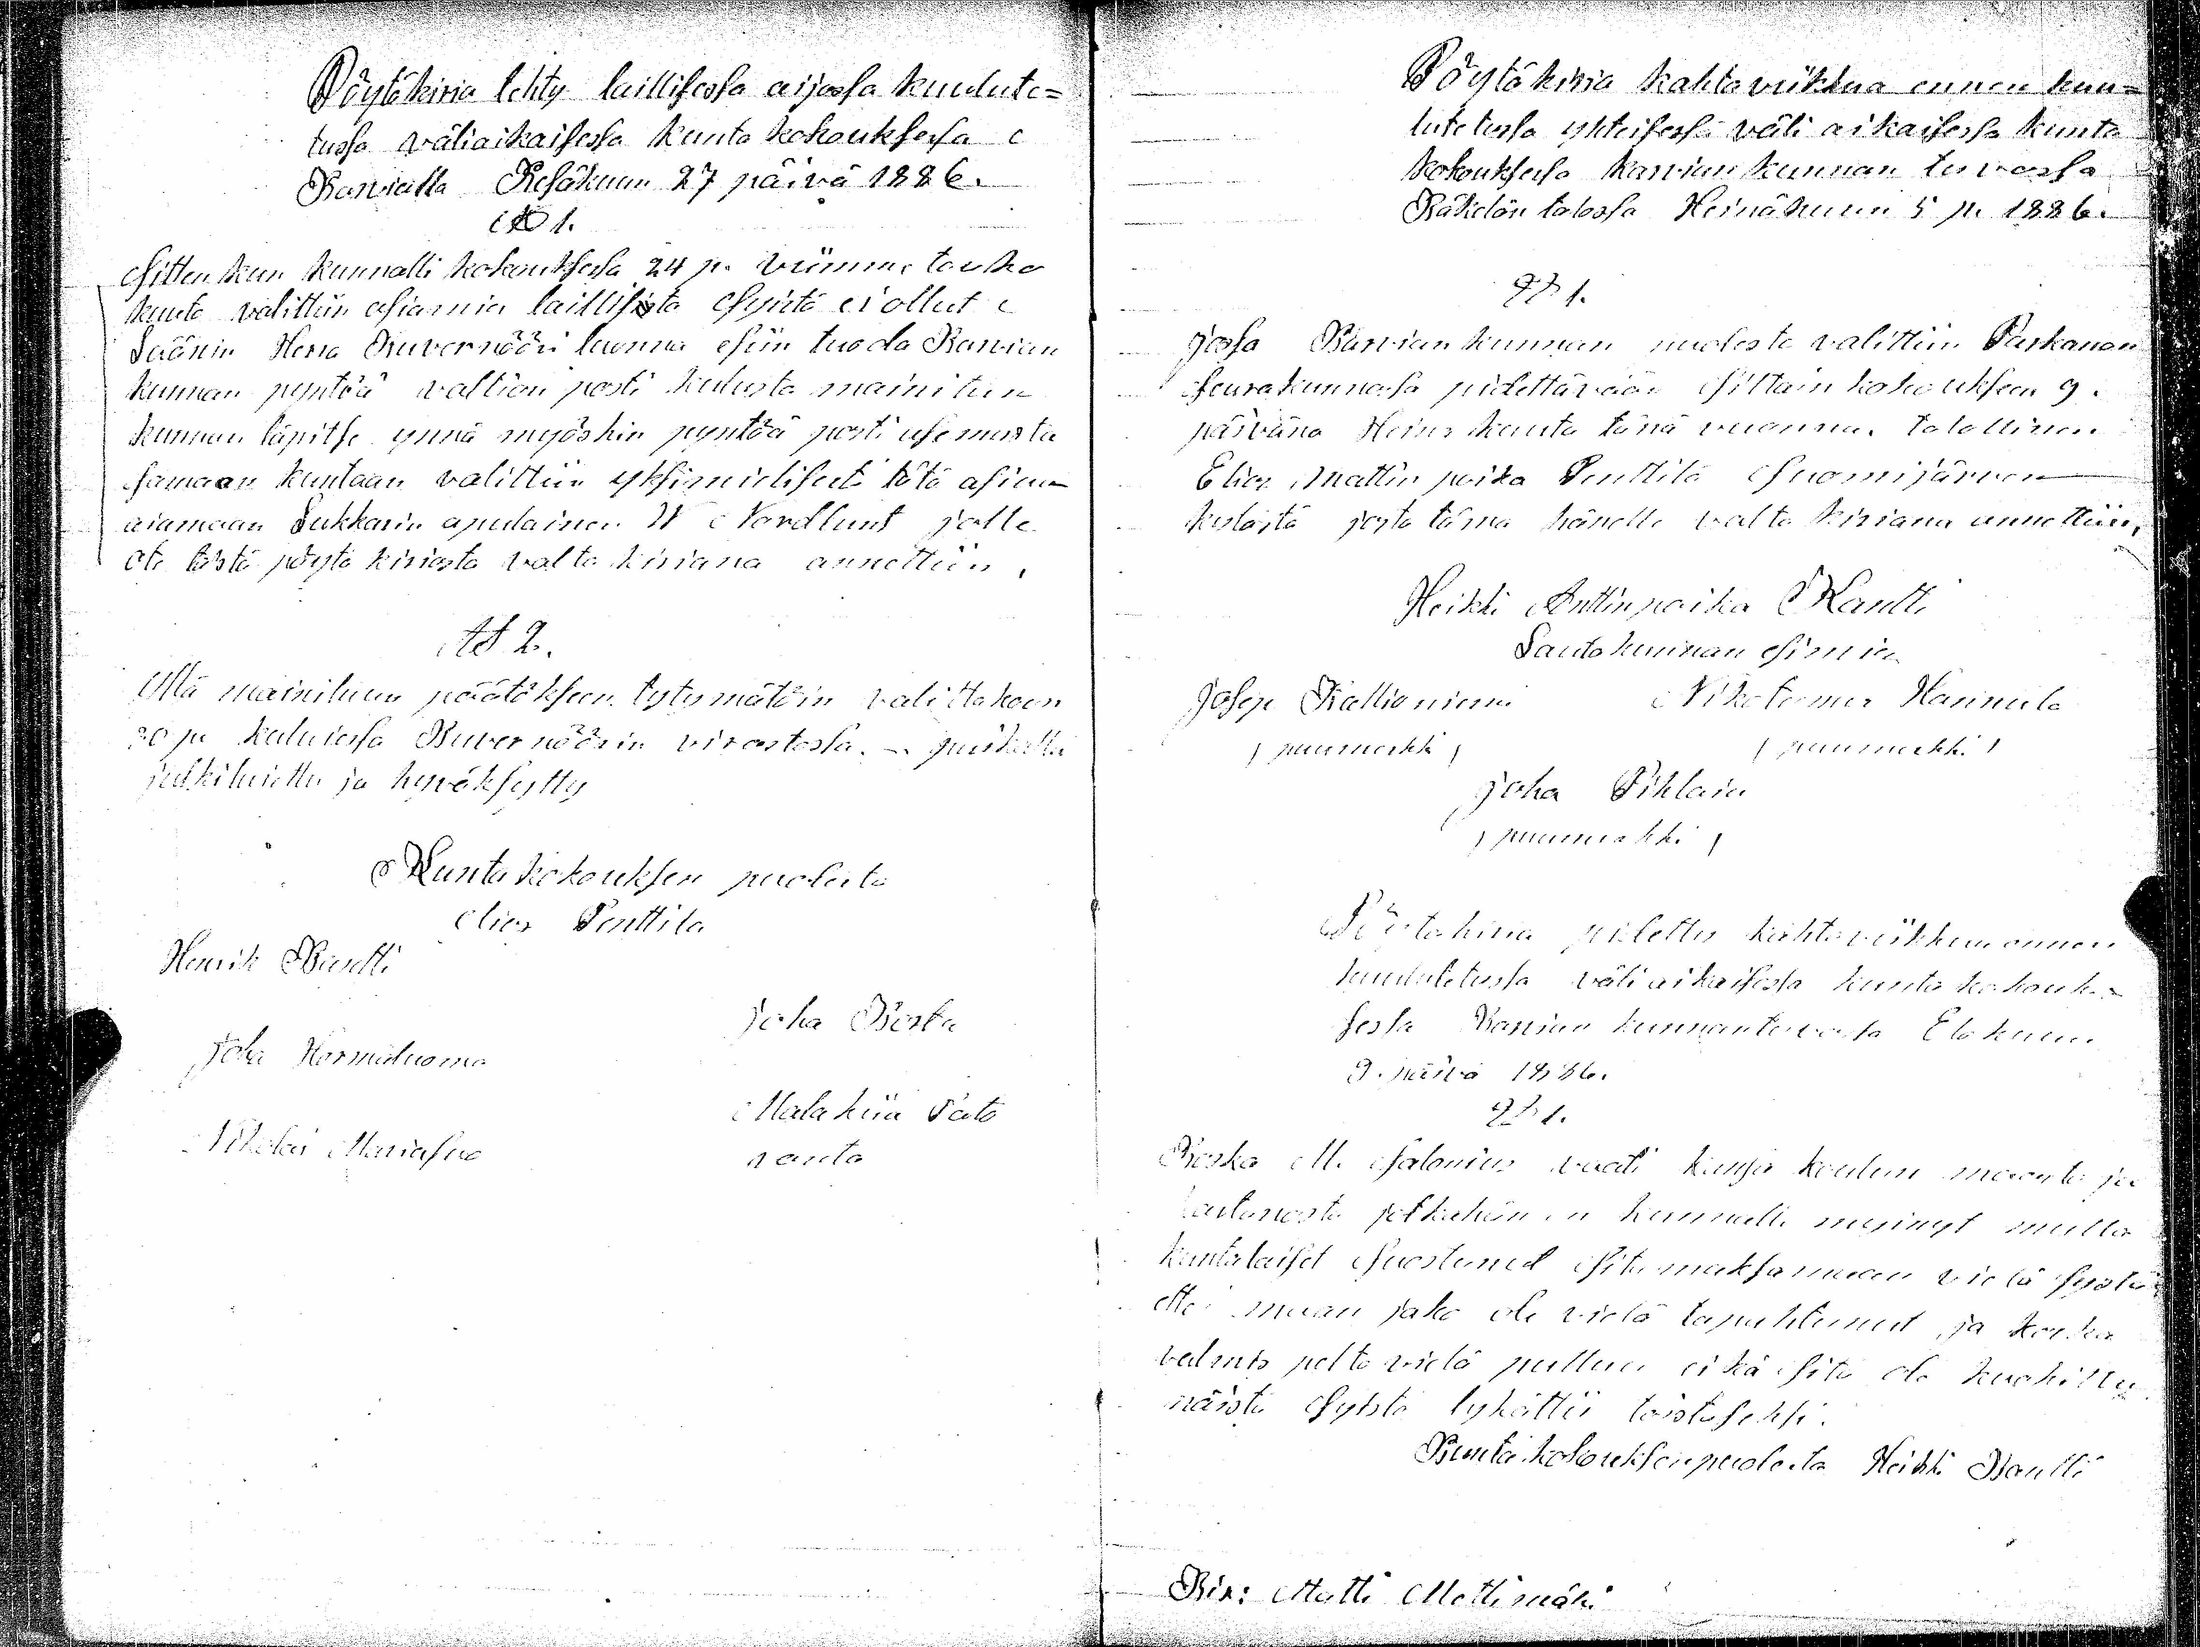 Pöytäkirja tehty laillisessa aijassa kuulute=
tussa väliaikaisessa kunta kokouksessa
Karvialla Kesäkuun 27 päivä 1886.
№ 1.
Sitten kun kunnalli kokouksessa 24 p. viimme touko
kuuta valittiin asiamia laillisista syistä ei ollut
Läänin Herra Kuvernööri luonna esiin tuoda Karvian
kunnan pyntöä valtion posti kulusta mainitun
kunnan läpitse ynnä myöskin pyntöä posti asemasta
samaan kuntaan valittiin yksimielisesti tätä asiaa
ajamaan Lukkarin apulainen W Nordlunt jolle
ote tästä pöytä kirjasta valta kirjana annettiin,
№ 2.
Yllä mainituun päätökseen tytymätöin valittakoon
30 p. kuluiessa Kuvernöörin virastossa. — paikalla
julkiluettu ja hyväksytty
Kunta kokouksen puolesta
Elias Penttila
Henrik Kantti
Joha Koska
Joha Hormaluoma
Malakiia Pato
ranta
Nikolai Mariasuo
Pöytäkirja kahta viikkua ennen kuu=
lutetussa yhteisessä väli aikaisessa kunta
kokouksessa Karvian kunnan tuvassa
Rähelän talossa Heinäkuun 5 p. 1886.
§ 1.
jossa Karvian kunnan puolesta valittiin Parkanon
seurakunnassa pidettävään sittain kokoukseen 9.
päivänä Heinä kuuta tänä vuonna. talollinen
Elias Mattin poika Penttilä Suomijärven
kylästä josta tämä hänelle valta kirjana annettiin,
Heikki Anttinpoika Kantti
Lautakunnan esimies
Josep Kallioniemi Nikotemus Hannula
( puumerkki ) ( puumerkki )
Joha Pihlaja
( puumerkki )
Pöytäkirja pidettu kahta viikkua ennen
kuulutetussa väliaikaisessa kunta kokouk=
sessa Karvian kunnantuvassa Elokuun
9. päivä 1886.
§ 1.
Koska M. Salonius vaati kansa koulun maasta ja
kartanosta jotka hän on kunnalle myinyt mutta
kuntalaiset Suostuned sitä maksamaan vielä systä
ettei maan jako ole vielä tapahtunut ja koska
valmis pelto vielä puttuu eikä sitä ole kuokittu
näistä syistä lykättiin toistaseksi.
Kunta kokouksen puolesta Heikki Kantti
Kir: Matti Mettimäki